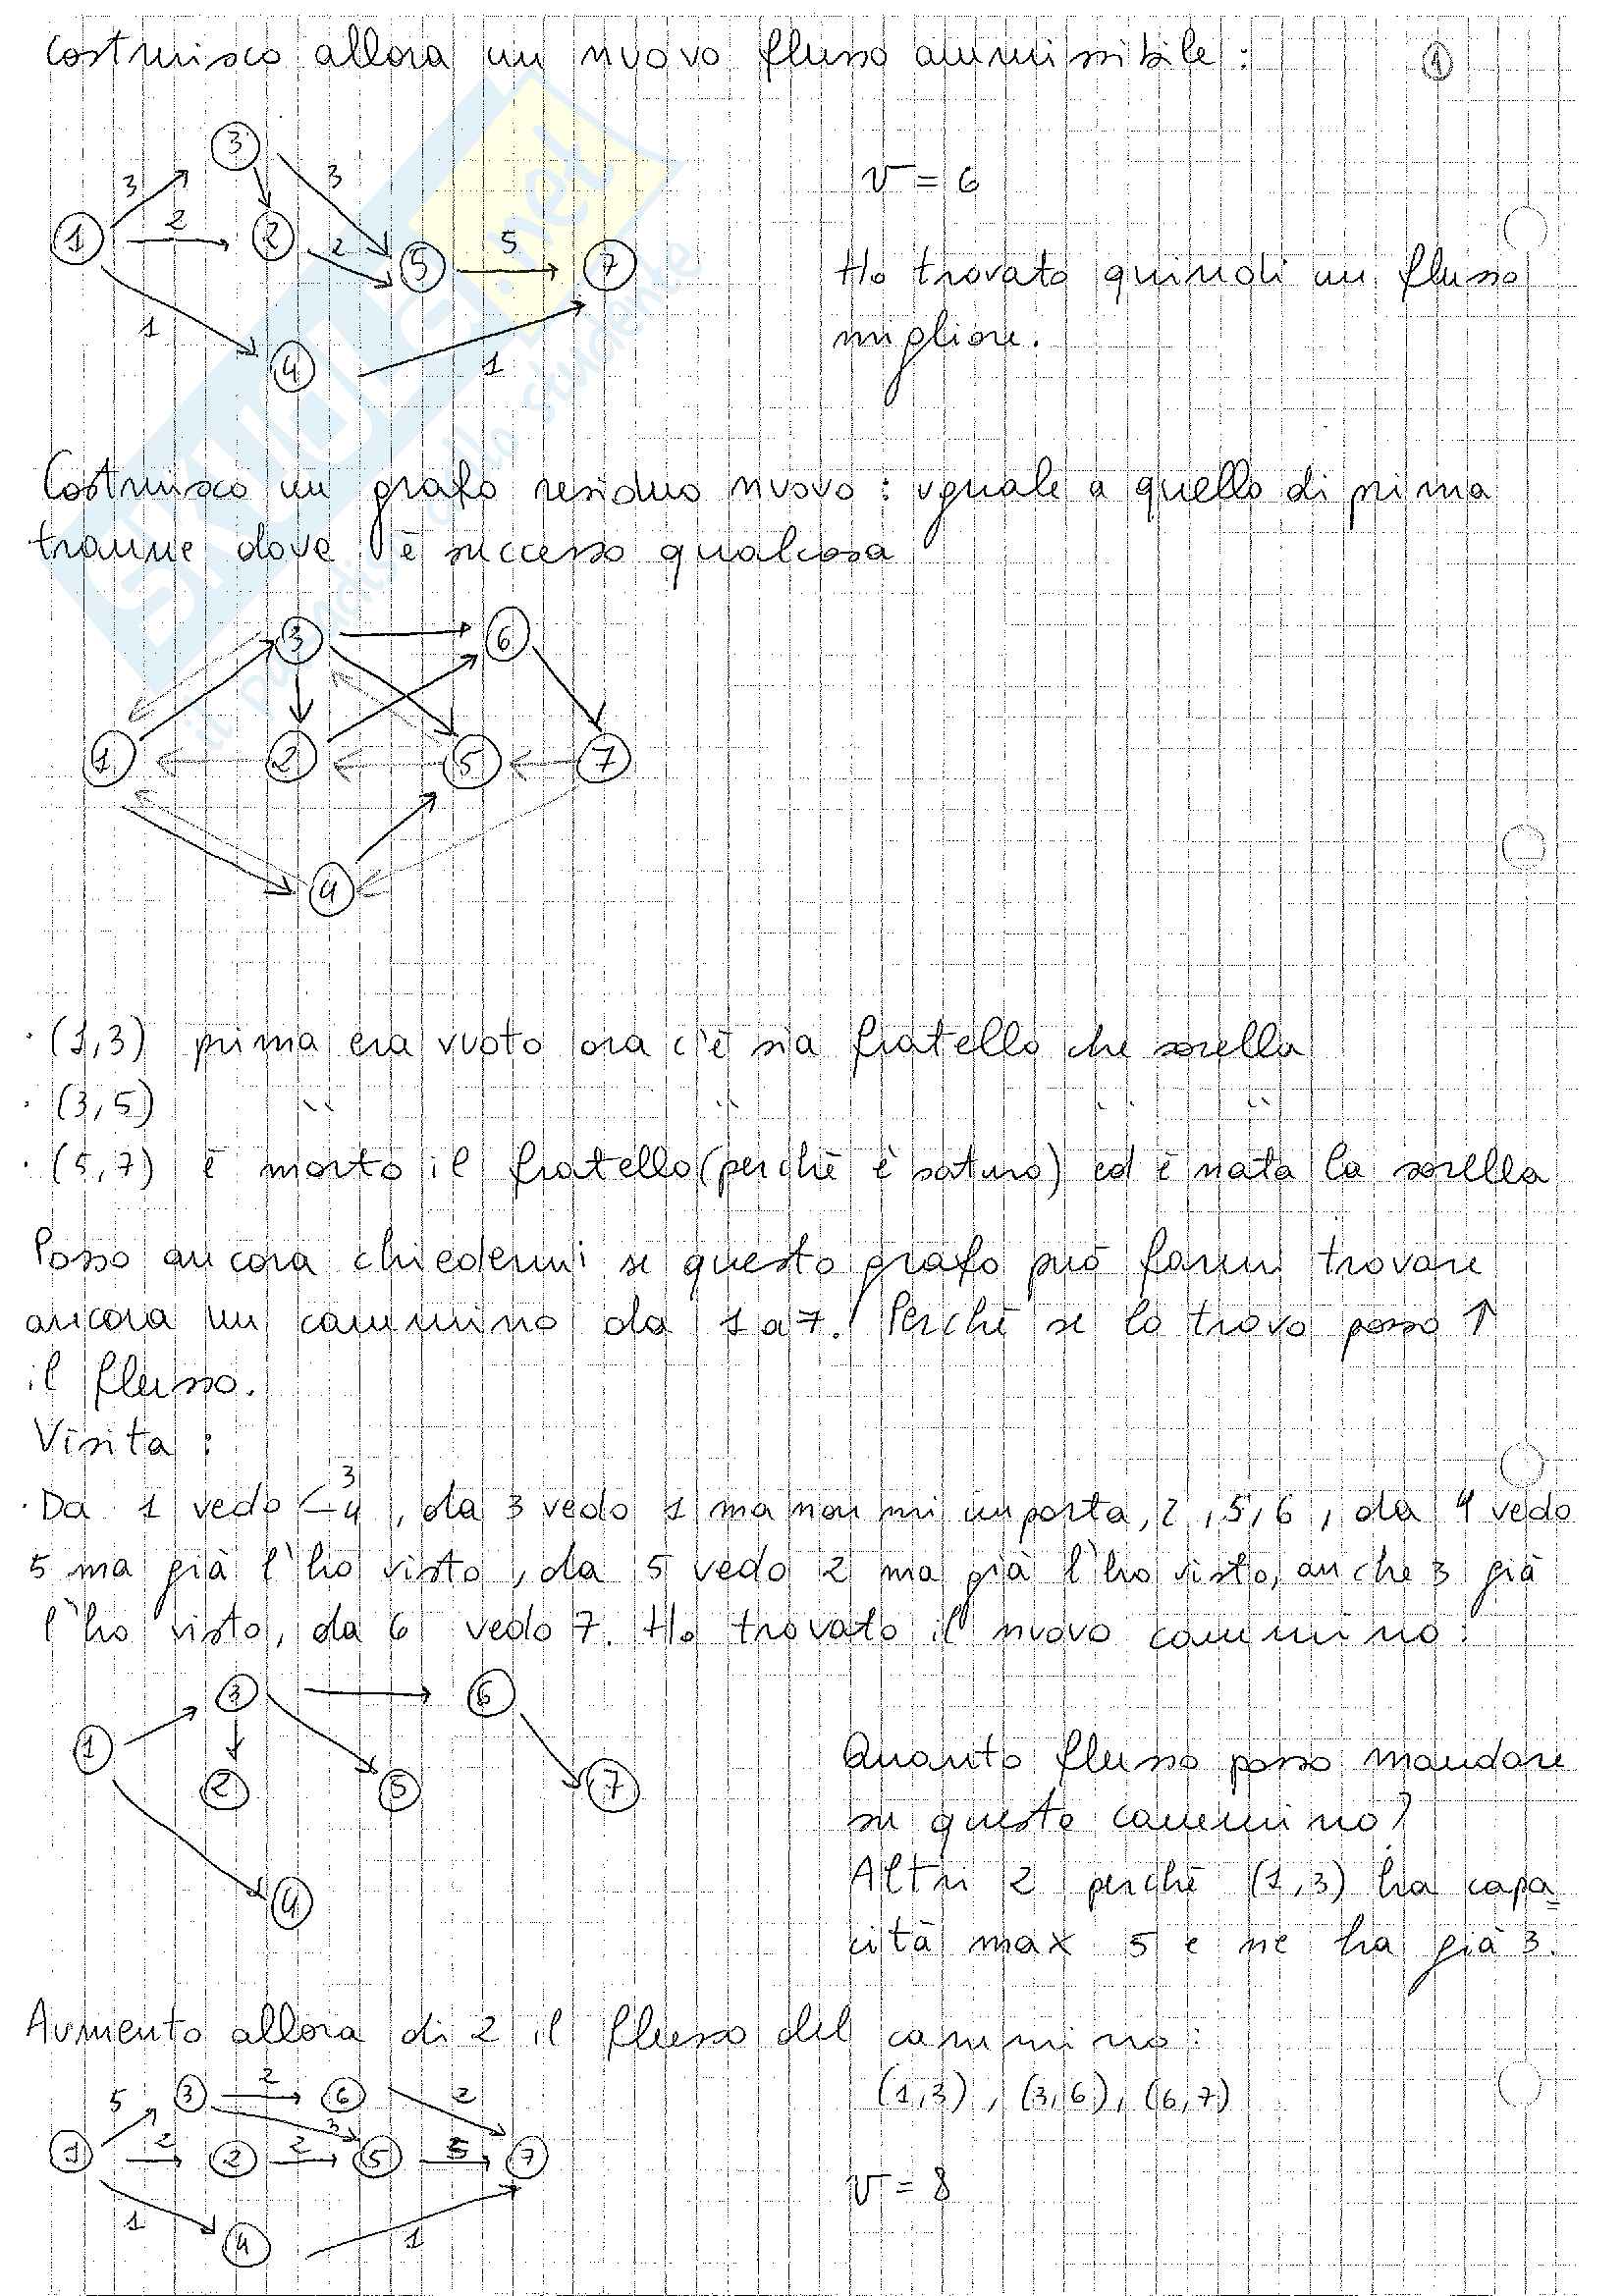 Costruisco allora un nuovo flusso ammissibile: 1
3
3
3
1
2
2
2
5
5
7
1
4
1
v = 6
Ho trovato quindi un flusso
migliore.
Costruisco un grafo residuo nuovo: uguale a quello di prima
tranne dove è successo qualcosa
3 6
1 2 5 7
4
· (1,3) prima era vuoto ora c'è sia fratello che sorella
· (3,5) `` `` `` ``
· (5,7) è morto il fratello (perchè è saturo) ed è nata la sorella
Posso ancora chiedermi se questo grafo può farmi trovare
ancora un cammino da 1 a 7. Perchè se lo trovo posso ↑
il flusso.
Visita:
· Da 1 vedo < 3 4, da 3 vedo 1 ma non mi importa, 2, 5, 6, da 4 vedo
5 ma già l'ho visto, da 5 vedo 2 ma già l'ho visto, anche 3 già
l'ho visto, da 6 vedo 7. Ho trovato il nuovo cammino:
3 6
1 2 5 7
4
Quanto flusso posso mandare
su questo cammino?
Altri 2 perchè (1,3) ha capa=
cità max 5 e ne ha già 3.
Aumento allora di 2 il flusso del cammino:
(1,3), (3,6), (6,7)
5 3 2 6 2
3
1 2 2 2 5 5 7
1 4 1
v = 8